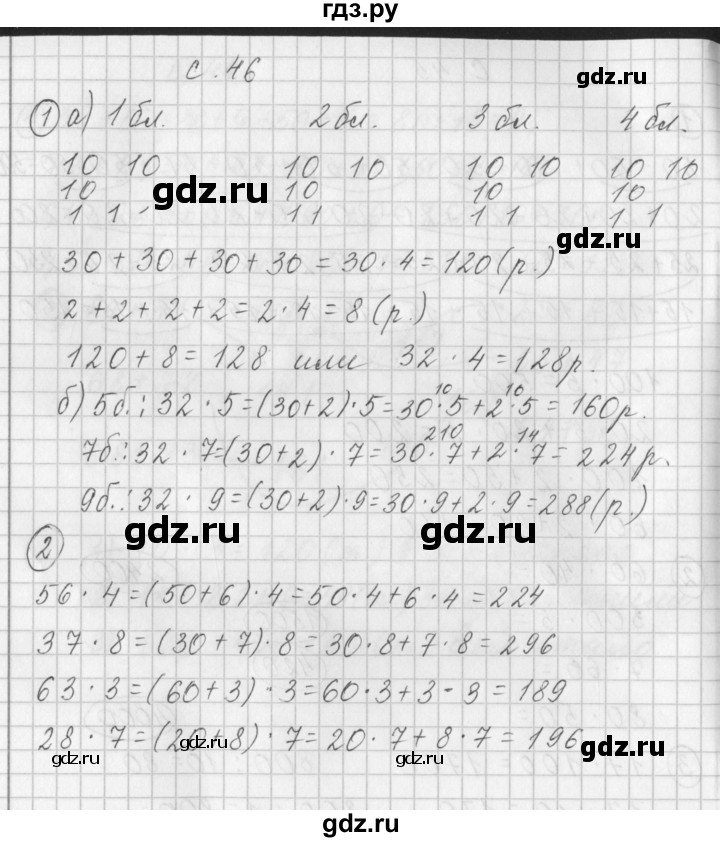 гдз.ру
с. 46
gdz.ru
1 а) 1 бл. 2 бл. 3 бл. 4 бл.
10 10 10 10 10 10 10 10
10 10 10 10
gdz.ru
1 1 1 1 1 1 1 1
gdz.ru
30 + 30 + 30 + 30 = 30 · 4 = 120 (р.)
2 + 2 + 2 + 2 = 2 · 4 = 8 (р.)
120 + 8 = 128 или 32 · 4 = 128 р.
10 10
б) 5б.: 32 · 5 = (30+2) · 5 = 30 · 5 + 2 · 5 = 160 р.
210 14
7б.: 32 · 7 = (30+2) · 7 = 30 · 7 + 2 · 7 = 224 р.
9б.: 32 · 9 = (30+2) · 9 = 30 · 9 + 2 · 9 = 288 (р.)
gdz.ru gdz.ru
2
56 · 4 = (50+6) · 4 = 50 · 4 + 6 · 4 = 224
37 · 8 = (30+7) · 8 = 30 · 8 + 7 · 8 = 296
63 · 3 = (60+3) · 3 = 60 · 3 + 3 · 3 = 189
28 · 7 = (20+8) · 7 = 20 · 7 + 8 · 7 = 196
gdz.ru gdz.ru gdz.ru gdz.ru
gdz.ru